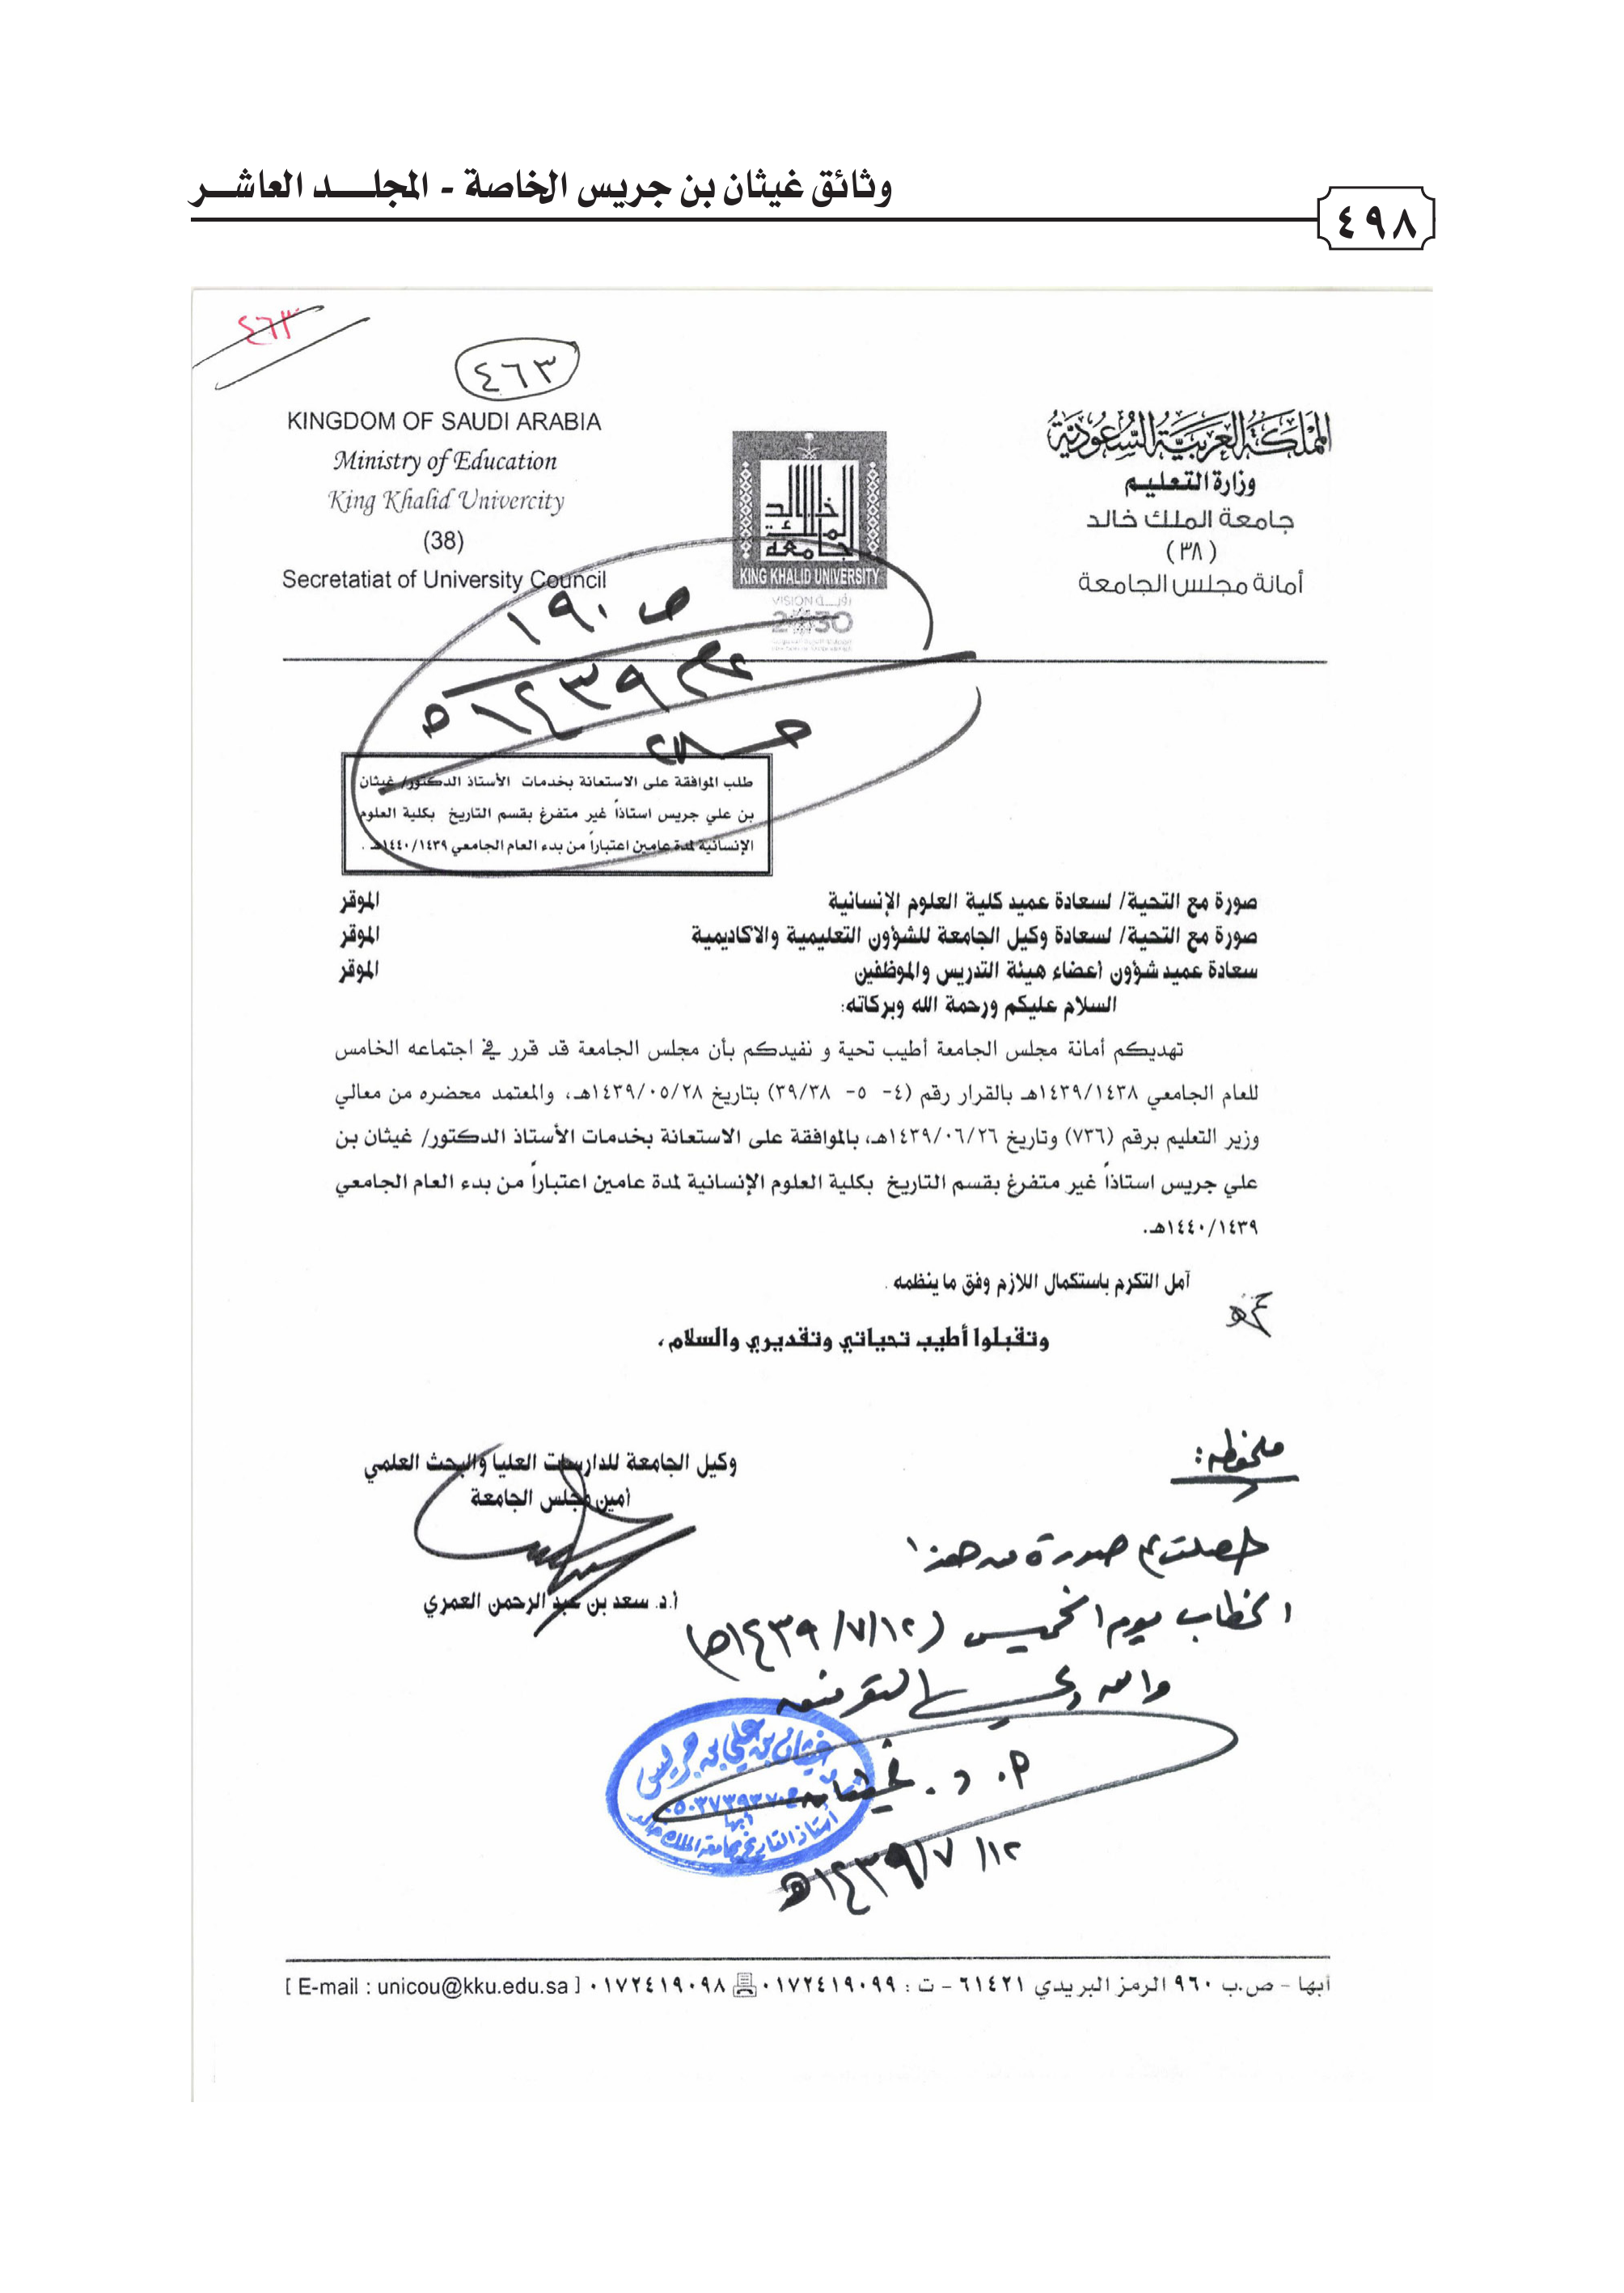 وثائق غيثان بن جريس الخاصة - المجلـــد العاشـــر
٤٩٨
٤٦٣
٤٦٣
KINGDOM OF SAUDI ARABIA
Ministry of Education
King Khalid Univercity
(38)
Secretatiat of University Council
المملكة العربية السعودية
وزارة التعليم
جامعة الملك خالد
(٣٨)
أمانة مجلس الجامعة
جامعة الملك خالد
KING KHALID UNIVERSITY
VISION رؤيــة
2030
ص ١٩٠
عام ١٤٣٩هـ
طلب الموافقة على الاستعانة بخدمات الأستاذ الدكتور/ غيثان
بن علي جريس استاذاً غير متفرغ بقسم التاريخ بكلية العلوم
الإنسانية لمدة عامين اعتباراً من بدء العام الجامعي ١٤٤٠/١٤٣٩هـ .
صورة مع التحية/ لسعادة عميد كلية العلوم الإنسانية الموقر
صورة مع التحية/ لسعادة وكيل الجامعة للشؤون التعليمية والاكاديمية الموقر
سعادة عميد شؤون أعضاء هيئة التدريس والموظفين الموقر
السلام عليكم ورحمة الله وبركاته:
تهديكم أمانة مجلس الجامعة أطيب تحية و نفيدكم بأن مجلس الجامعة قد قرر في اجتماعه الخامس
للعام الجامعي ١٤٣٩/١٤٣٨هـ بالقرار رقم (٤- ٥- ٣٩/٣٨) بتاريخ ١٤٣٩/٠٥/٢٨هـ، والمعتمد محضره من معالي
وزير التعليم برقم (٧٣٦) وتاريخ ١٤٣٩/٠٦/٢٦هـ، بالموافقة على الاستعانة بخدمات الأستاذ الدكتور/ غيثان بن
علي جريس استاذاً غير متفرغ بقسم التاريخ بكلية العلوم الإنسانية لمدة عامين اعتباراً من بدء العام الجامعي
١٤٤٠/١٤٣٩هـ.
آمل التكرم باستكمال اللازم وفق ما ينظمه .
وتقبلوا أطيب تحياتي وتقديري والسلام ،
وكيل الجامعة للدارسات العليا والبحث العلمي
أمين مجلس الجامعة
أ.د. سعد بن عبد الرحمن العمري
ملحوظه :
حصلت على صورة من هذا
الخطاب يوم الخميس (١٢/٧/١٤٣٩هـ)
والله ولي التوفيق
أ. د. غيثان
١٢/٧/١٤٣٩هـ
غيثان بن علي بن جريس
٠٥٠٣٧٣٩٣٧٠
أبها
أستاذ التاريخ بجامعة الملك خالد
أبها - ص.ب ٩٦٠ الرمز البريدي ٦١٤٢١ - ت : ٠١٧٢٤١٩٠٩٩ ٠١٧٢٤١٩٠٩٨ [ E-mail : unicou@kku.edu.sa ]